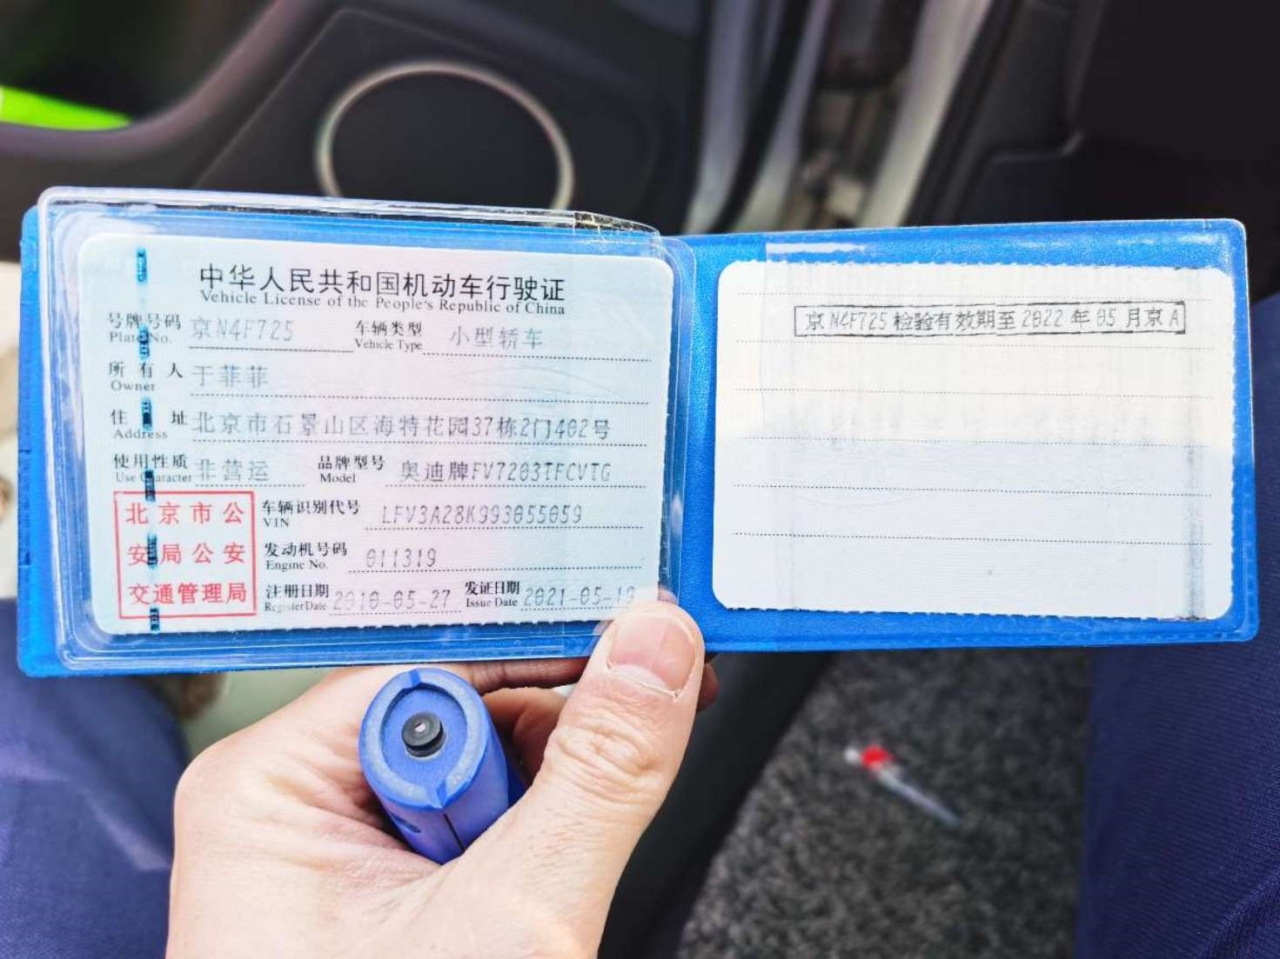 中华人民共和国机动车行驶证
Vehicle License of the People's Republic of China
号牌号码 京N4F725 车辆类型 小型轿车
Plate No. Vehicle Type
所有人 于菲菲
Owner
住址 北京市石景山区海特花园37栋2门402号
Address
使用性质 非营运 品牌型号 奥迪牌FV7203TFCVTG
Use Character Model
北京市公
安局公安
交通管理局
车辆识别代号 LFV3A28K993055059
VIN
发动机号码 011319
Engine No.
注册日期 2010-05-27 发证日期 2021-05-19
Register Date Issue Date
京N4F725检验有效期至2022年05月京A